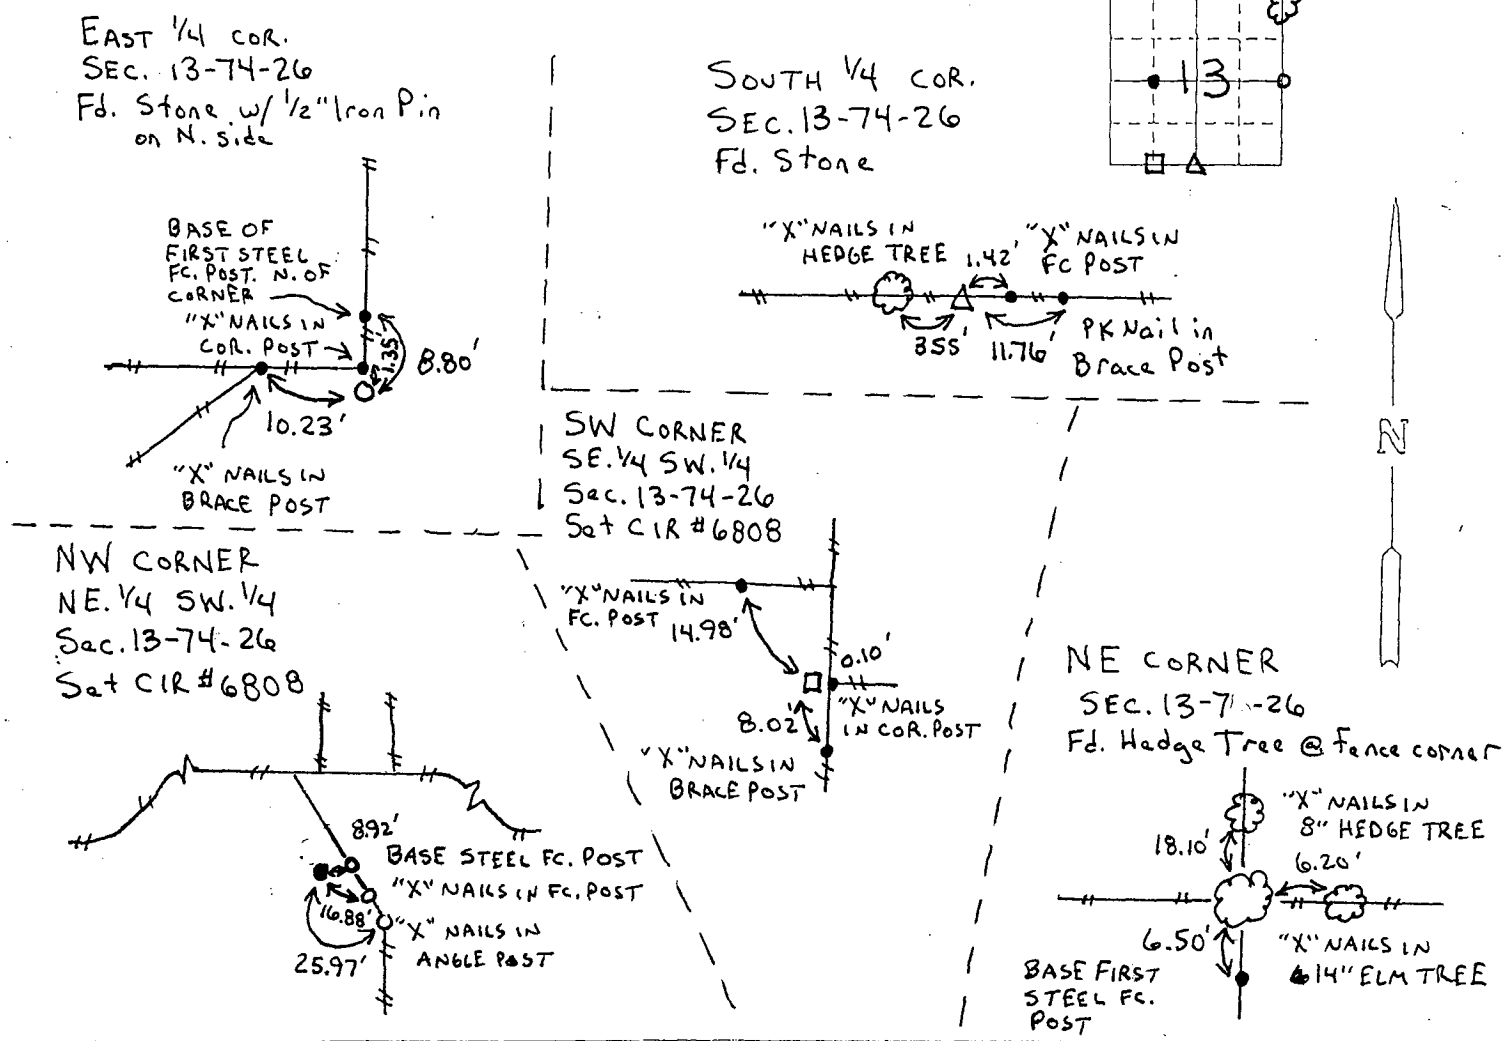 EAST 1/4 COR.
SEC. 13-74-26
Fd. Stone w/ 1/2" Iron Pin
on N. side
BASE OF
FIRST STEEL
FC. POST. N. OF
CORNER
"X" NAILS IN
COR. POST
1.35'
8.80'
10.23'
"X" NAILS IN
BRACE POST
SOUTH 1/4 COR.
SEC. 13-74-26
Fd. Stone
"X" NAILS IN
HEDGE TREE
1.42'
"X" NAILS IN
FC POST
355'
11.76'
PK Nail in
Brace Post
13
N
SW CORNER
SE. 1/4 SW. 1/4
Sec. 13-74-26
Set CIR #6808
"X" NAILS IN
FC. POST
14.98'
0.10'
8.02'
"X" NAILS
IN COR. POST
"X" NAILS IN
BRACE POST
NW CORNER
NE. 1/4 SW. 1/4
Sec. 13-74-26
Set CIR #6808
8.92'
BASE STEEL FC. POST
"X" NAILS IN FC. POST
16.88'
"X" NAILS IN
ANGLE POST
25.97'
NE CORNER
SEC. 13-7 -26
Fd. Hedge Tree @ fence corner
"X" NAILS IN
8" HEDGE TREE
18.10'
6.20'
6.50'
"X" NAILS IN
14" ELM TREE
BASE FIRST
STEEL FC.
POST